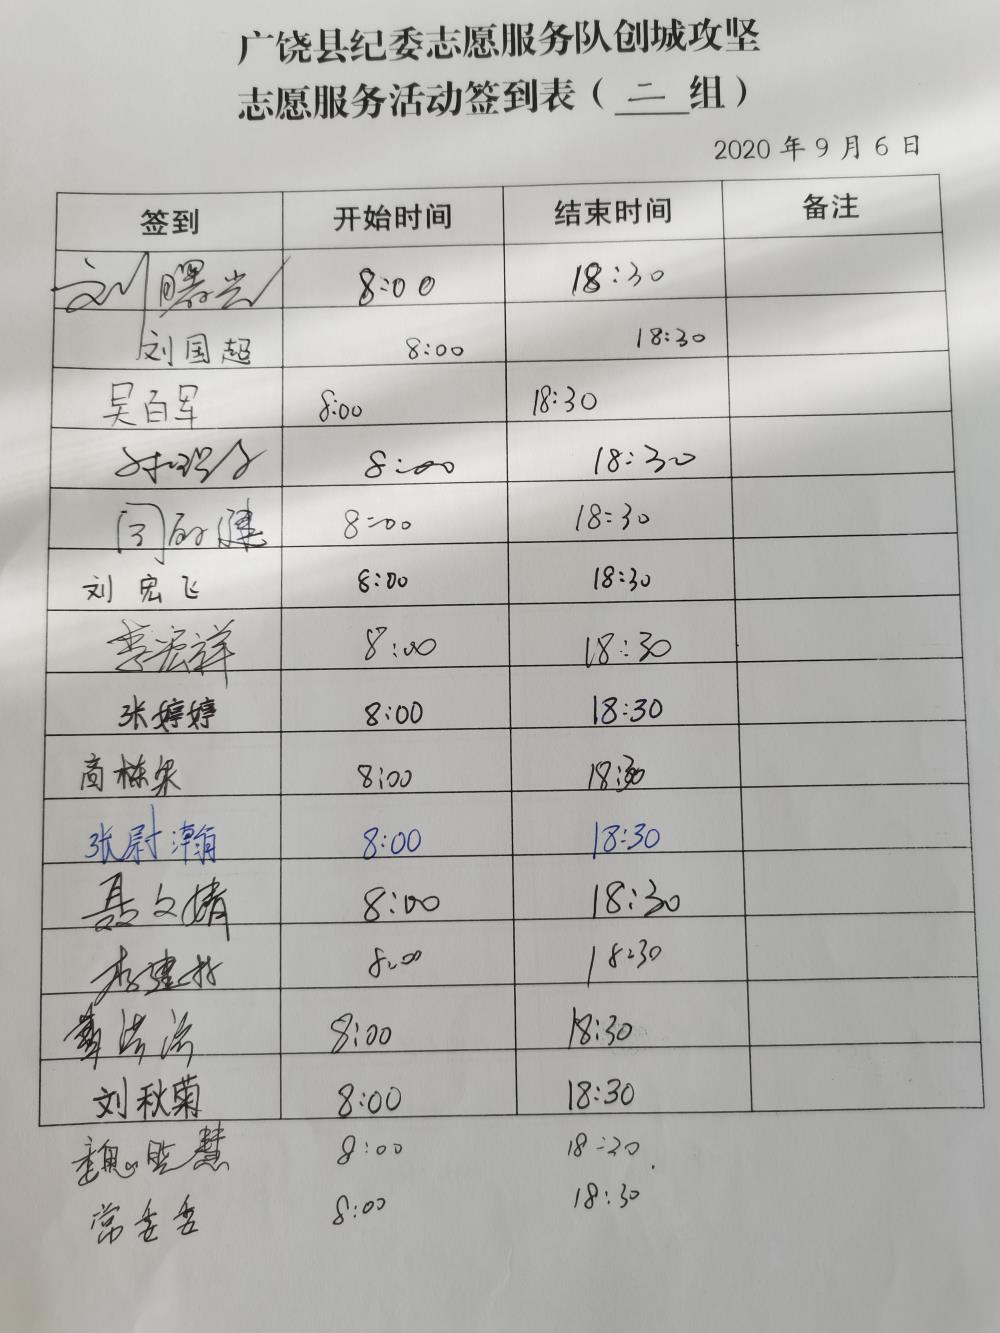 广饶县纪委志愿服务队创城攻坚
志愿服务活动签到表（二组）
2020年9月6日
签到 开始时间 结束时间 备注
刘曙光 8:00 18:30
刘国超 8:00 18:30
吴百军 8:00 18:30
8:00 18:30
8:00 18:30
刘宏飞 8:00 18:30
李宏祥 8:00 18:30
张婷婷 8:00 18:30
商栋梁 8:00 18:30
张尉瀚 8:00 18:30
聂文婧 8:00 18:30
李建村 8:00 18:30
8:00 18:30
刘秋菊 8:00 18:30
魏晓慧 8:00 18:30
常 8:00 18:30